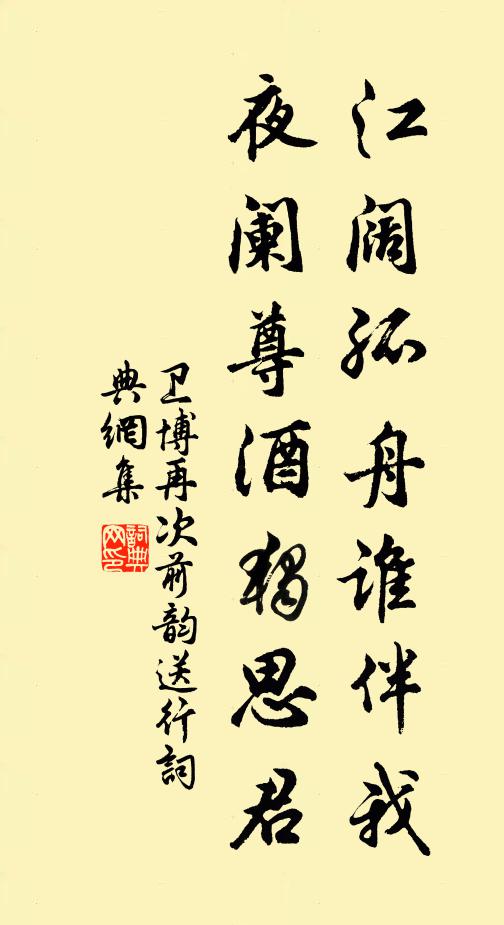 江阔孤舟谁伴我
夜阑尊酒独思君
卫博再次前韵送行词
典網集
詞典网印